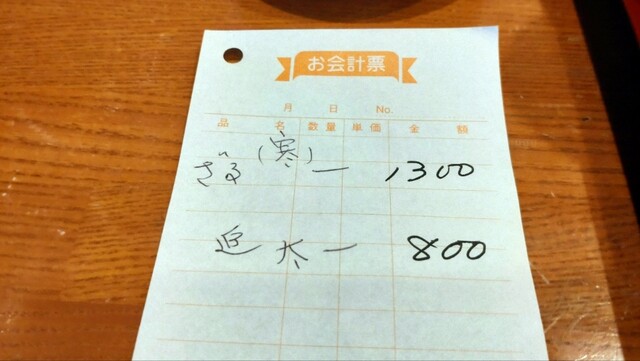 お会計票
月 日 No.
品 名 数量 単価 金 額
(寒)
ざる 一 1300
追大 一 800